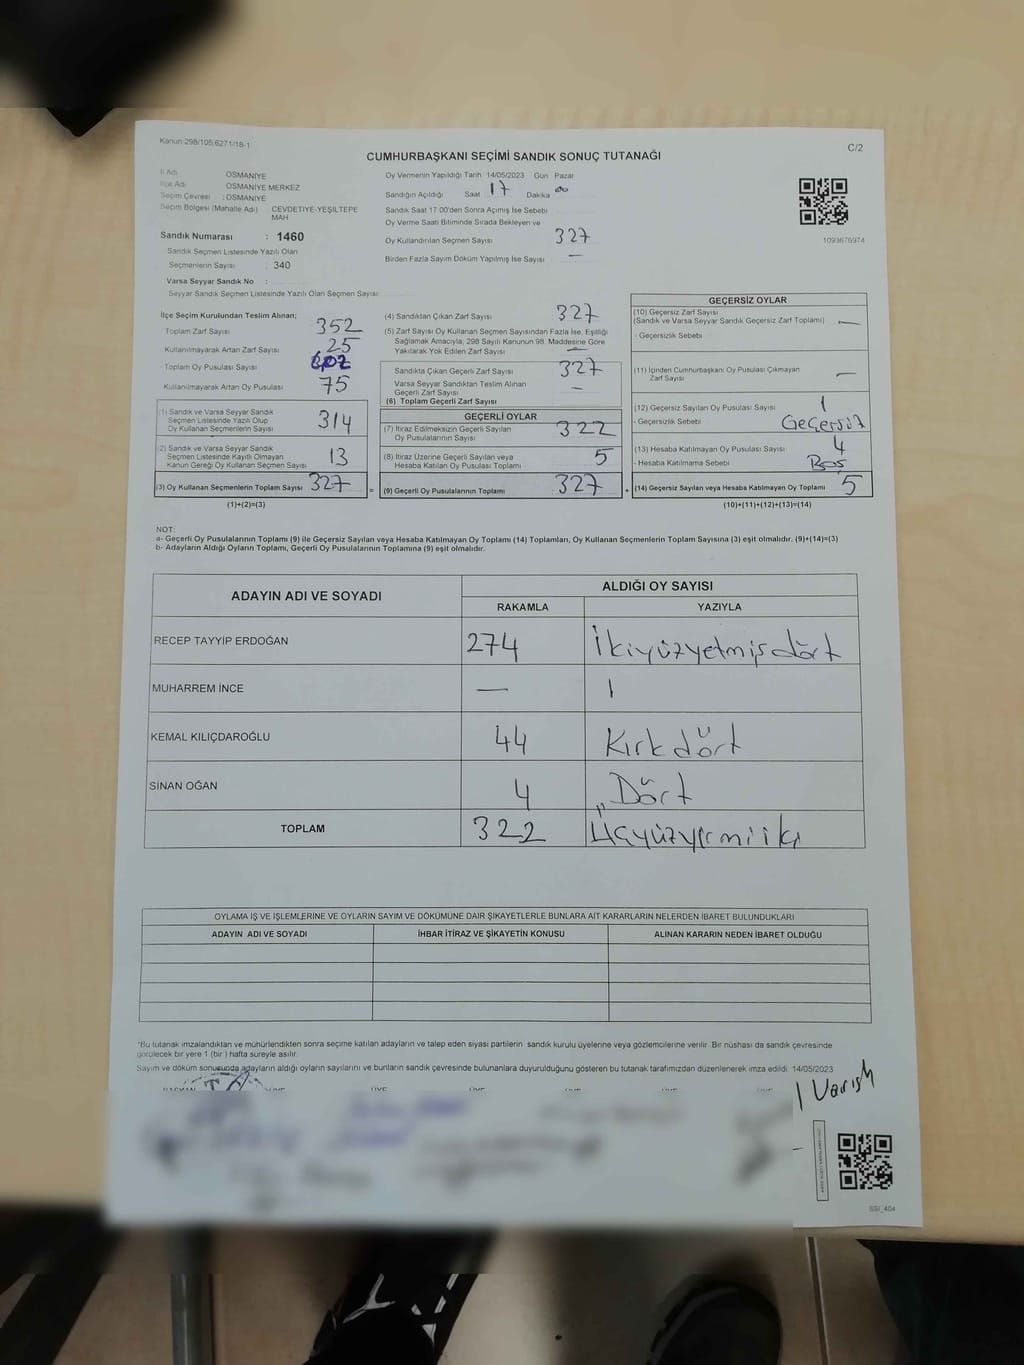 Kanun:298/105;6271/18-1
C/2
CUMHURBAŞKANI SEÇİMİ SANDIK SONUÇ TUTANAĞI
İl Adı OSMANİYE
İlçe Adı OSMANİYE MERKEZ
Seçim Çevresi : OSMANİYE
Seçim Bölgesi (Mahalle Adı) CEVDETİYE-YEŞİLTEPE MAH
Sandık Numarası : 1460
Sandık Seçmen Listesinde Yazılı Olan
Seçmenlerin Sayısı : 340
Varsa Seyyar Sandık No :
Seyyar Sandık Seçmen Listesinde Yazılı Olan Seçmen Sayısı
Oy Vermenin Yapıldığı Tarih 14/05/2023 Gün Pazar
Sandığın Açıldığı Saat 17 Dakika 00
Sandık Saat 17.00'den Sonra Açımış İse Sebebi
Oy Verme Saati Bitiminde Sırada Bekleyen ve
Oy Kullandırılan Seçmen Sayısı 327
Birden Fazla Sayım Döküm Yapılmış İse Sayısı —
1093676974
İlçe Seçim Kurulundan Teslim Alınan;
Toplam Zarf Sayısı 352
Kullanılmayarak Artan Zarf Sayısı 25
Toplam Oy Pusulası Sayısı
Kullanılmayarak Artan Oy Pusulası 75
(1) Sandık ve Varsa Seyyar Sandık
Seçmen Listesinde Yazılı Olup
Oy Kullanan Seçmenlerin Sayısı 314
(2) Sandık ve Varsa Seyyar Sandık
Seçmen Listesinde Kayıtlı Olmayan
Kanun Gereği Oy Kullanan Seçmen Sayısı 13
(3) Oy Kullanan Seçmenlerin Toplam Sayısı 327 =
(1)+(2)=(3)
(4) Sandıktan Çıkan Zarf Sayısı 327
(5) Zarf Sayısı Oy Kullanan Seçmen Sayısından Fazla İse, Eşitliği
Sağlamak Amacıyla; 298 Sayılı Kanunun 98. Maddesine Göre
Yakılarak Yok Edilen Zarf Sayısı —
Sandıkta Çıkan Geçerli Zarf Sayısı 327
Varsa Seyyar Sandıktan Teslim Alınan
Geçerli Zarf Sayısı —
(6) Toplam Geçerli Zarf Sayısı
GEÇERLİ OYLAR
(7) İtiraz Edilmeksizin Geçerli Sayılan
Oy Pusulalarının Sayısı 322
(8) İtiraz Üzerine Geçerli Sayılan veya
Hesaba Katılan Oy Pusulası Toplamı 5
(9) Geçerli Oy Pusulalarının Toplamı 327 +
GEÇERSİZ OYLAR
(10) Geçersiz Zarf Sayısı
(Sandık ve Varsa Seyyar Sandık Geçersiz Zarf Toplamı) —
- Geçersizlik Sebebi
(11) İçinden Cumhurbaşkanı Oy Pusulası Çıkmayan
Zarf Sayısı —
(12) Geçersiz Sayılan Oy Pusulası Sayısı 1
- Geçersizlik Sebebi Geçersiz
(13) Hesaba Katılmayan Oy Pusulası Sayısı 4
- Hesaba Katılmama Sebebi Boş
(14) Geçersiz Sayılan veya Hesaba Katılmayan Oy Toplamı 5
(10)+(11)+(12)+(13)=(14)
NOT:
a- Geçerli Oy Pusulalarının Toplamı (9) ile Geçersiz Sayılan veya Hesaba Katılmayan Oy Toplamı (14) Toplamları, Oy Kullanan Seçmenlerin Toplam Sayısına (3) eşit olmalıdır. (9)+(14)=(3)
b- Adayların Aldığı Oyların Toplamı, Geçerli Oy Pusulalarının Toplamına (9) eşit olmalıdır.
ADAYIN ADI VE SOYADI ALDIĞI OY SAYISI
RAKAMLA YAZIYLA
RECEP TAYYİP ERDOĞAN 274 İkiyüzyetmişdört
MUHARREM İNCE — |
KEMAL KILIÇDAROĞLU 44 Kırkdört
SİNAN OĞAN 4 Dört
TOPLAM 322 Üçyüzyirmiiki
OYLAMA İŞ VE İŞLEMLERİNE VE OYLARIN SAYIM VE DÖKÜMÜNE DAİR ŞİKAYETLERLE BUNLARA AİT KARARLARIN NELERDEN İBARET BULUNDUKLARI
ADAYIN ADI VE SOYADI İHBAR İTİRAZ VE ŞİKAYETİN KONUSU ALINAN KARARIN NEDEN İBARET OLDUĞU
*Bu tutanak imzalandıktan ve mühürlendikten sonra seçime katılan adayların ve talep eden siyasi partilerin sandık kurulu üyelerine veya gözlemcilerine verilir. Bir nüshası da sandık çevresinde
görülecek bir yere 1 (bir ) hafta süreyle asılır.
Sayım ve döküm sonucunda adayların aldığı oyların sayılarını ve bunların sandık çevresinde bulunanlara duyurulduğunu gösteren bu tutanak tarafımızdan düzenlenerek imza edildi. 14/05/2023
BAŞKAN ÜYE ÜYE ÜYE ÜYE ÜYE
SSI_404